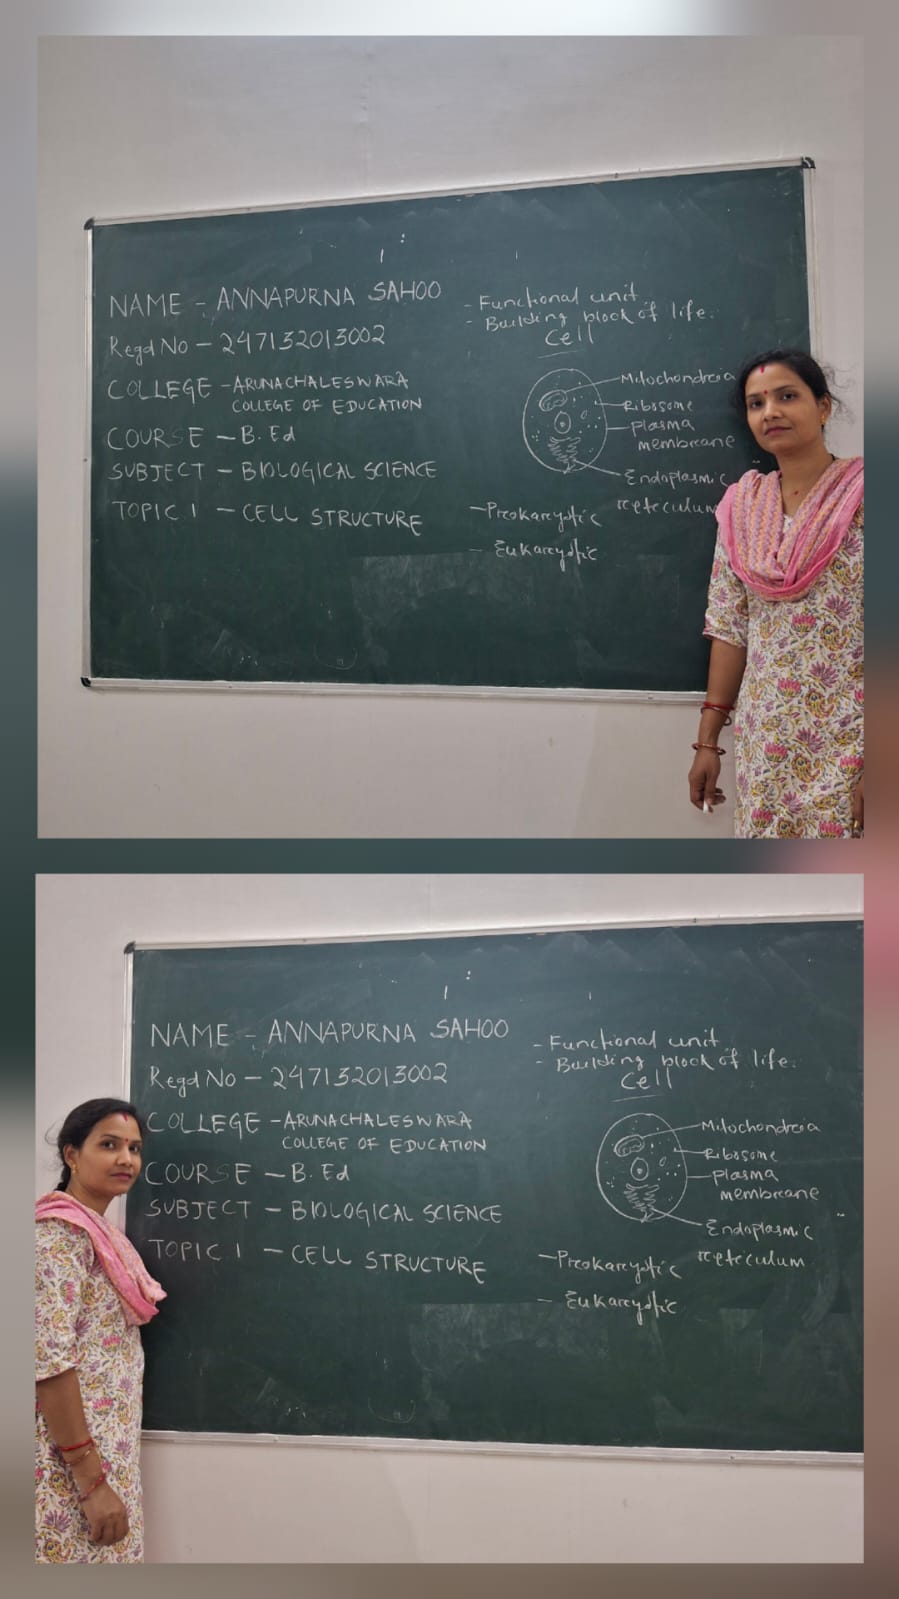 NAME - ANNAPURNA SAHOO
Regd No - 247132013002
COLLEGE - ARUNACHALESWARA
COLLEGE OF EDUCATION
COURSE - B. Ed
SUBJECT - BIOLOGICAL SCIENCE
TOPIC 1 - CELL STRUCTURE
- Functional unit
- Building block of life.
Cell
Mitochondria
Ribosome
plasma
membrane
Endoplasmic
reticulum
- Prokaryotic
- Eukaryotic
NAME - ANNAPURNA SAHOO
Regd No - 247132013002
COLLEGE - ARUNACHALESWARA
COLLEGE OF EDUCATION
COURSE - B. Ed
SUBJECT - BIOLOGICAL SCIENCE
TOPIC 1 - CELL STRUCTURE
- Functional unit
- Building block of life.
Cell
Mitochondria
Ribosome
plasma
membrane
Endoplasmic
reticulum
- Prokaryotic
- Eukaryotic